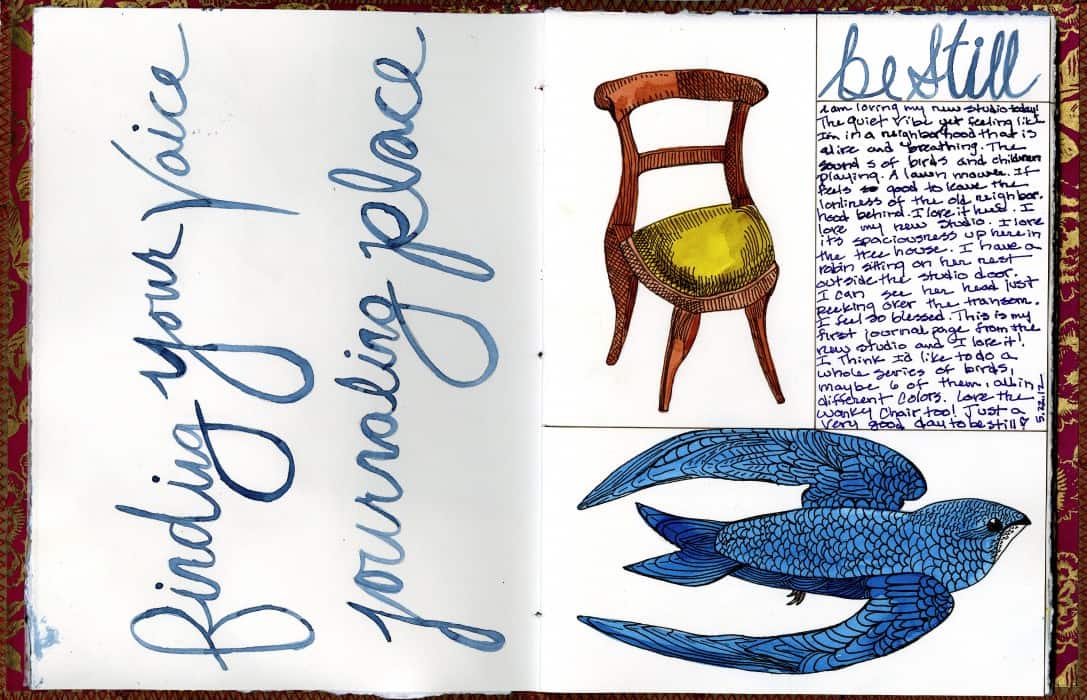 finding your Voice
journaling place
be Still
I am loving my new studio today!
The quiet vibe yet feeling like
I'm in a neighborhood that is
alive and breathing. The
sounds of birds and children
playing. A lawn mower. It
feels so good to leave the
lonliness of the old neighbor.
hood behind. I love it here. I
love my new studio. I love
its spaciousness up here in
the tree house. I have a
robin sitting on her nest
outside the studio door.
I can see her head just
peeking over the transom.
I feel so blessed. This is my
first journal page from the
new studio and I love it!
I think I'd like to do a
whole series of birds,
maybe 6 of them, all in
different colors. Love the
wonky chair too! Just a
very good day to be still
5.22.12